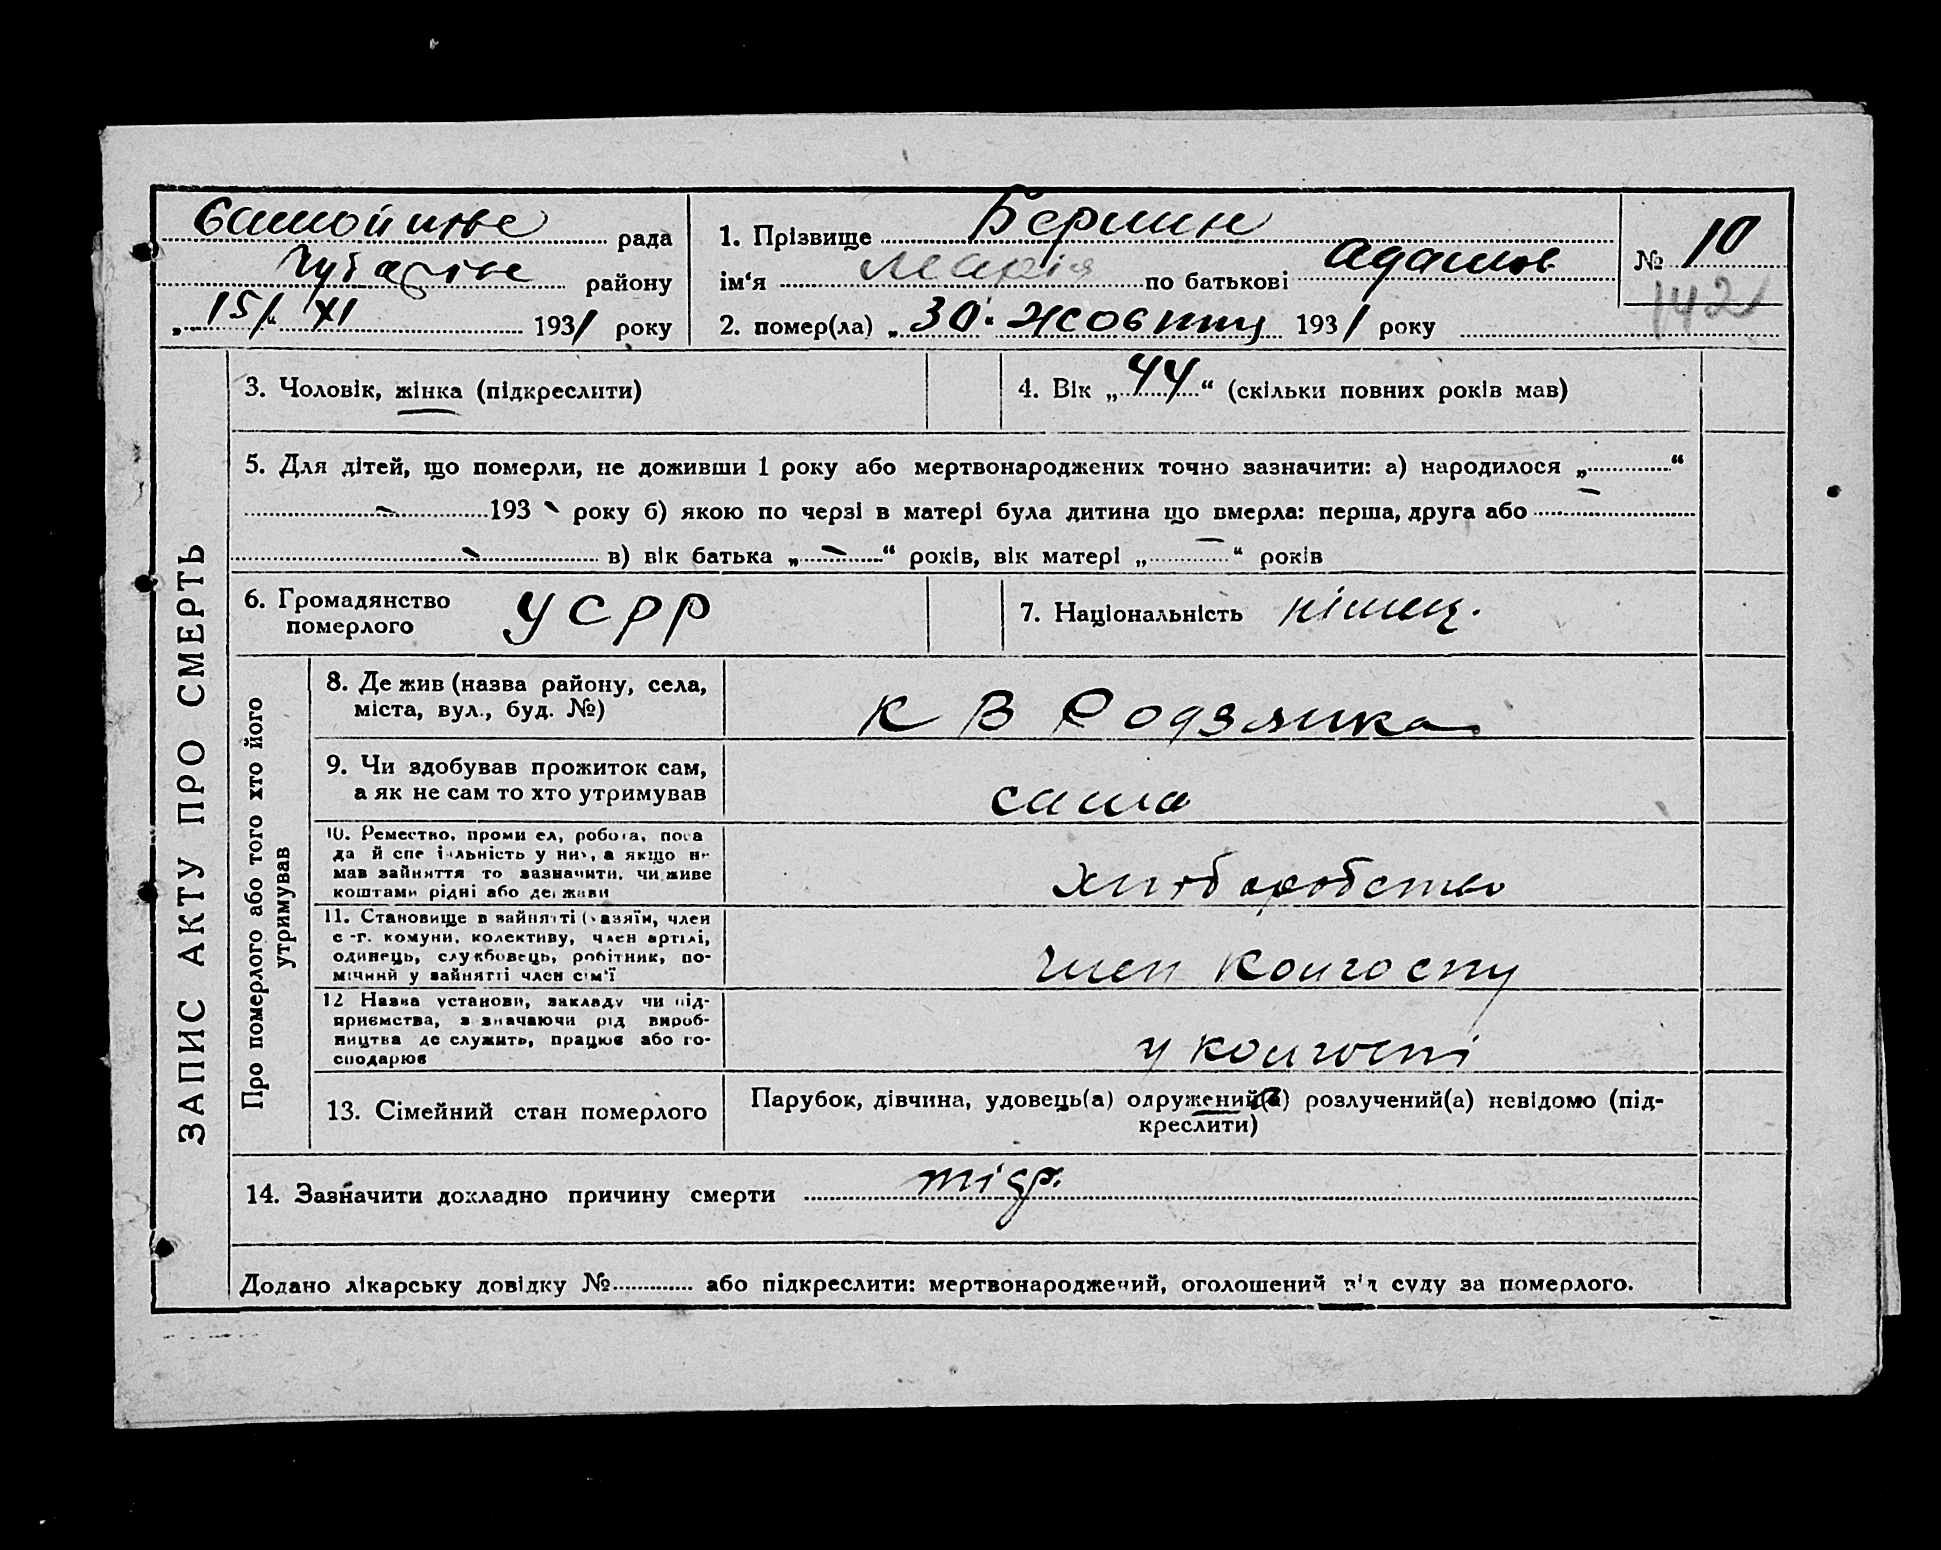 рада
району
15/XI 1931 року
1. Прізвище Бермин
ім‘я Марія по батькові Адамов
2. помер(ла) „30“ жовтну 1931 року
№ 10
142
ЗАПИС АКТУ ПРО СМЕРТЬ
3. Чоловік, жінка (підкреслити)
4. Вік „44“ (скільки повних років мав)
5. Для дітей, що померли, не доживши 1 року або мертвонароджених точно зазначити: а) народилося „ “
193 року б) якою по черзі в матері була дитина що вмерла: перша, друга або
в) вік батька „ “ років, вік матері „ “ років
6. Громадянство
померлого УСРР
7. Національність німец.
Про померлого або того хто його
утримував
8. Де жив (назва району, села,
міста, вул., буд. №)
К В Родзянка
9. Чи здобував прожиток сам,
а як не сам то хто утримував
сама
10. Ремество, промисел, робота, поса
да й спеціяльність у них, а якщо не
мав зайняття то зазначити, чи живе
коштами рідні або держави
хліборобство
11. Становище в зайнятті (хазяїн, член
с.-г. комуни, колективу, член артілі,
одинець, службовець, робітник, по-
мічний у зайнятті член сім‘ї
член колгоспу
12 Назва установи, закладу чи під-
приємства, зазначаючи рід вироб-
ництва де служить, працює або го-
сподарює
у колгоспі
13. Сімейний стан померлого
Парубок, дівчина, удовець(а) одружений(а) розлучений(а) невідомо (під-
креслити)
14. Зазначити докладно причину смерти
Додано лікарську довідку № або підкреслити: мертвонароджений, оголошений від суду за померлого.